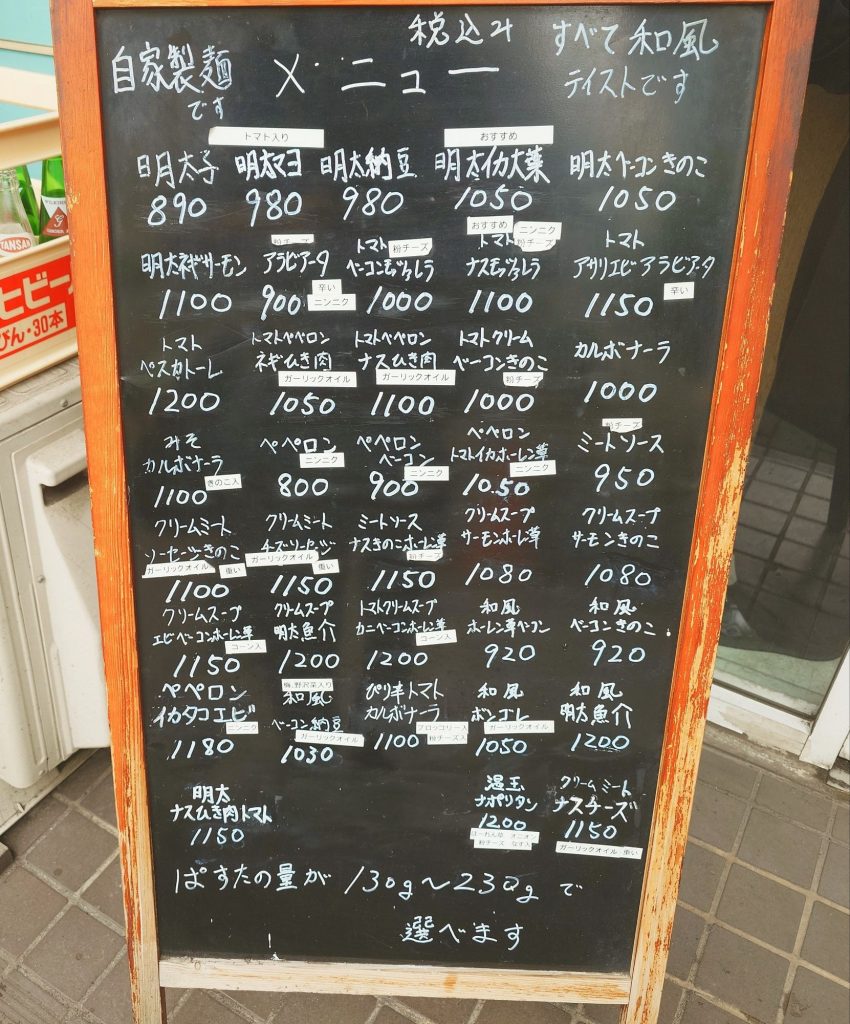 税込み
すべて和風
自家製麺
メニュー
テイストです
です
トマト入り
おすすめ
明太子
明太マヨ
明太納豆
明太イカ大葉
明太ベーコンきのこ
890
980
980
1050
1050
おすすめ
ニンニク
粉チーズ
トマト
粉チーズ
トマト
粉チーズ
トマト
明太ネギサーモン
アラビアータ
ベーコンモッツァレラ
ナスモッツァレラ
アサリエビアラビアータ
辛い
辛い
1100
900
ニンニク
1000
1100
1150
トマト
トマトペペロン
トマトペペロン
トマトクリーム
カルボナーラ
ペスカトーレ
ネギひき肉
ナスひき肉
ベーコンきのこ
ガーリックオイル
ガーリックオイル
粉チーズ
1200
1050
1100
1000
1000
粉チーズ
みそ
ペペロン
ペペロン
ペペロン
ミートソース
カルボナーラ
ニンニク
ベーコン
トマトイカホーレン草
ニンニク
ニンニク
きのこ入
1100
800
900
10.50
950
クリームミート
クリームミート
ミートソース
クリームスープ
クリームスープ
ソーセージきのこ
チーズソーセージ
ナスきのこホーレン草
サーモンホーレン草
サーモンきのこ
ガーリックオイル
重い
ガーリックオイル
重い
粉チーズ
1100
1150
1150
1080
1080
クリームスープ
クリームスープ
トマトクリームスープ
和風
和風
エビベーコンホーレン草
明太魚介
カニベーコンホーレン草
ホーレン草ベーコン
ベーコンきのこ
コーン入
コーン入
1150
1200
1200
920
920
ペペロン
梅、野沢菜入り
和風
ぴり辛トマト
和風
和風
イカタコエビ
ベーコン納豆
カルボナーラ
ボンゴレ
明太魚介
ニンニク
ガーリックオイル
ブロッコリー入
粉チーズ入
ガーリックオイル
1180
1030
1100
1050
1200
明太
温玉
クリームミート
ナスひき肉トマト
ナポリタン
ナスチーズ
1150
1200
1150
ほーれん草 オニオン
粉チーズ なす入
ガーリックオイル 重い
ぱすたの量が 130g～230gで
選べます
TANSAN
ビー
びん・30本